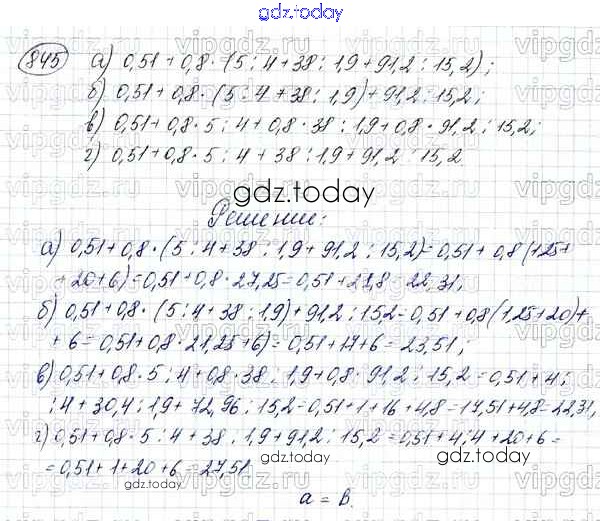 gdz.today
845 а) 0,51 + 0,8 · (5 : 4 + 38 : 1,9 + 91,2 : 15,2);
б) 0,51 + 0,8 · (5 : 4 + 38 : 1,9) + 91,2 : 15,2;
в) 0,51 + 0,8 · 5 : 4 + 0,8 · 38 : 1,9 + 0,8 · 91,2 : 15,2;
г) 0,51 + 0,8 · 5 : 4 + 38 : 1,9 + 91,2 : 15,2
gdz.today
Решение:
а) 0,51 + 0,8 · (5 : 4 + 38 : 1,9 + 91,2 : 15,2) = 0,51 + 0,8 (1,25 +
+ 20 + 6) = 0,51 + 0,8 · 27,25 = 0,51 + 21,8 = 22,31;
б) 0,51 + 0,8 · (5 : 4 + 38 : 1,9) + 91,2 : 15,2 = 0,51 + 0,8 (1,25 + 20) +
+ 6 = 0,51 + 0,8 · 21,25 + 6) = 0,51 + 17 + 6 = 23,51;
в) 0,51 + 0,8 · 5 : 4 + 0,8 · 38 : 1,9 + 0,8 · 91,2 : 15,2 = 0,51 + 4 :
: 4 + 30,4 : 1,9 + 72,96 : 15,2 = 0,51 + 1 + 16 + 4,8 = 17,51 + 4,8 = 22,31,
г) 0,51 + 0,8 · 5 : 4 + 38 : 1,9 + 91,2 : 15,2 = 0,51 + 4 : 4 + 20 + 6 =
= 0,51 + 1 + 20 + 6 = 27,51
gdz.today
gdz.today
а = в.